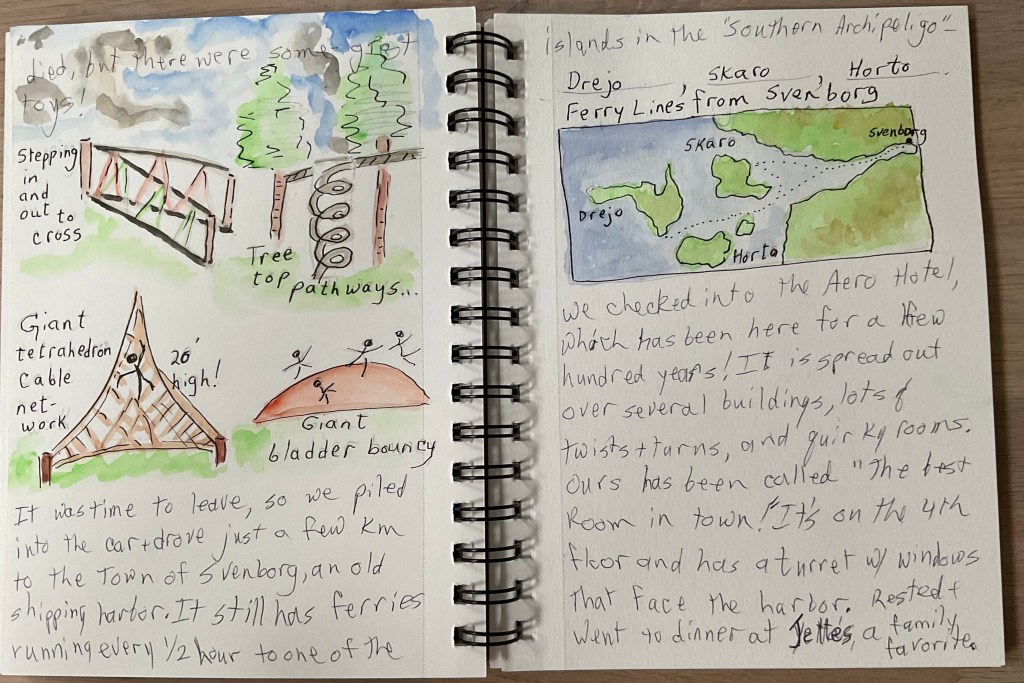 died, but there were some great
toys!
Stepping
in
and
out to
cross
Tree
top pathways...
Giant
tetrahedron
Cable
net-
work
20'
high!
Giant
bladder bouncy
It was time to leave, so we piled
into the car + drove just a few km
to the Town of Svenborg, an old
shipping harbor. It still has ferries
running every 1/2 hour to one of the
islands in the "Southern Archipeligo" -
Drejo, Skaro, Horto
Ferry Lines from Svenborg
Svenborg
Skaro
Drejo
Horta
We checked into the Aero Hotel,
which has been here for a few
hundred years! It is spread out
over several buildings, lots of
twists + turns, and quirky rooms.
Ours has been called "The best
Room in town!" It's on the 4th
floor and has a turret w/ windows
that face the harbor. Rested +
went to dinner at Jette's, a family
favorite.